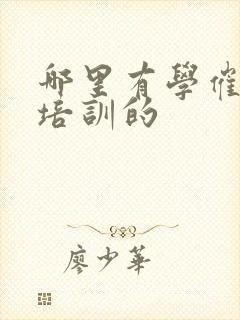 哪里有學催
培訓的
廖少華